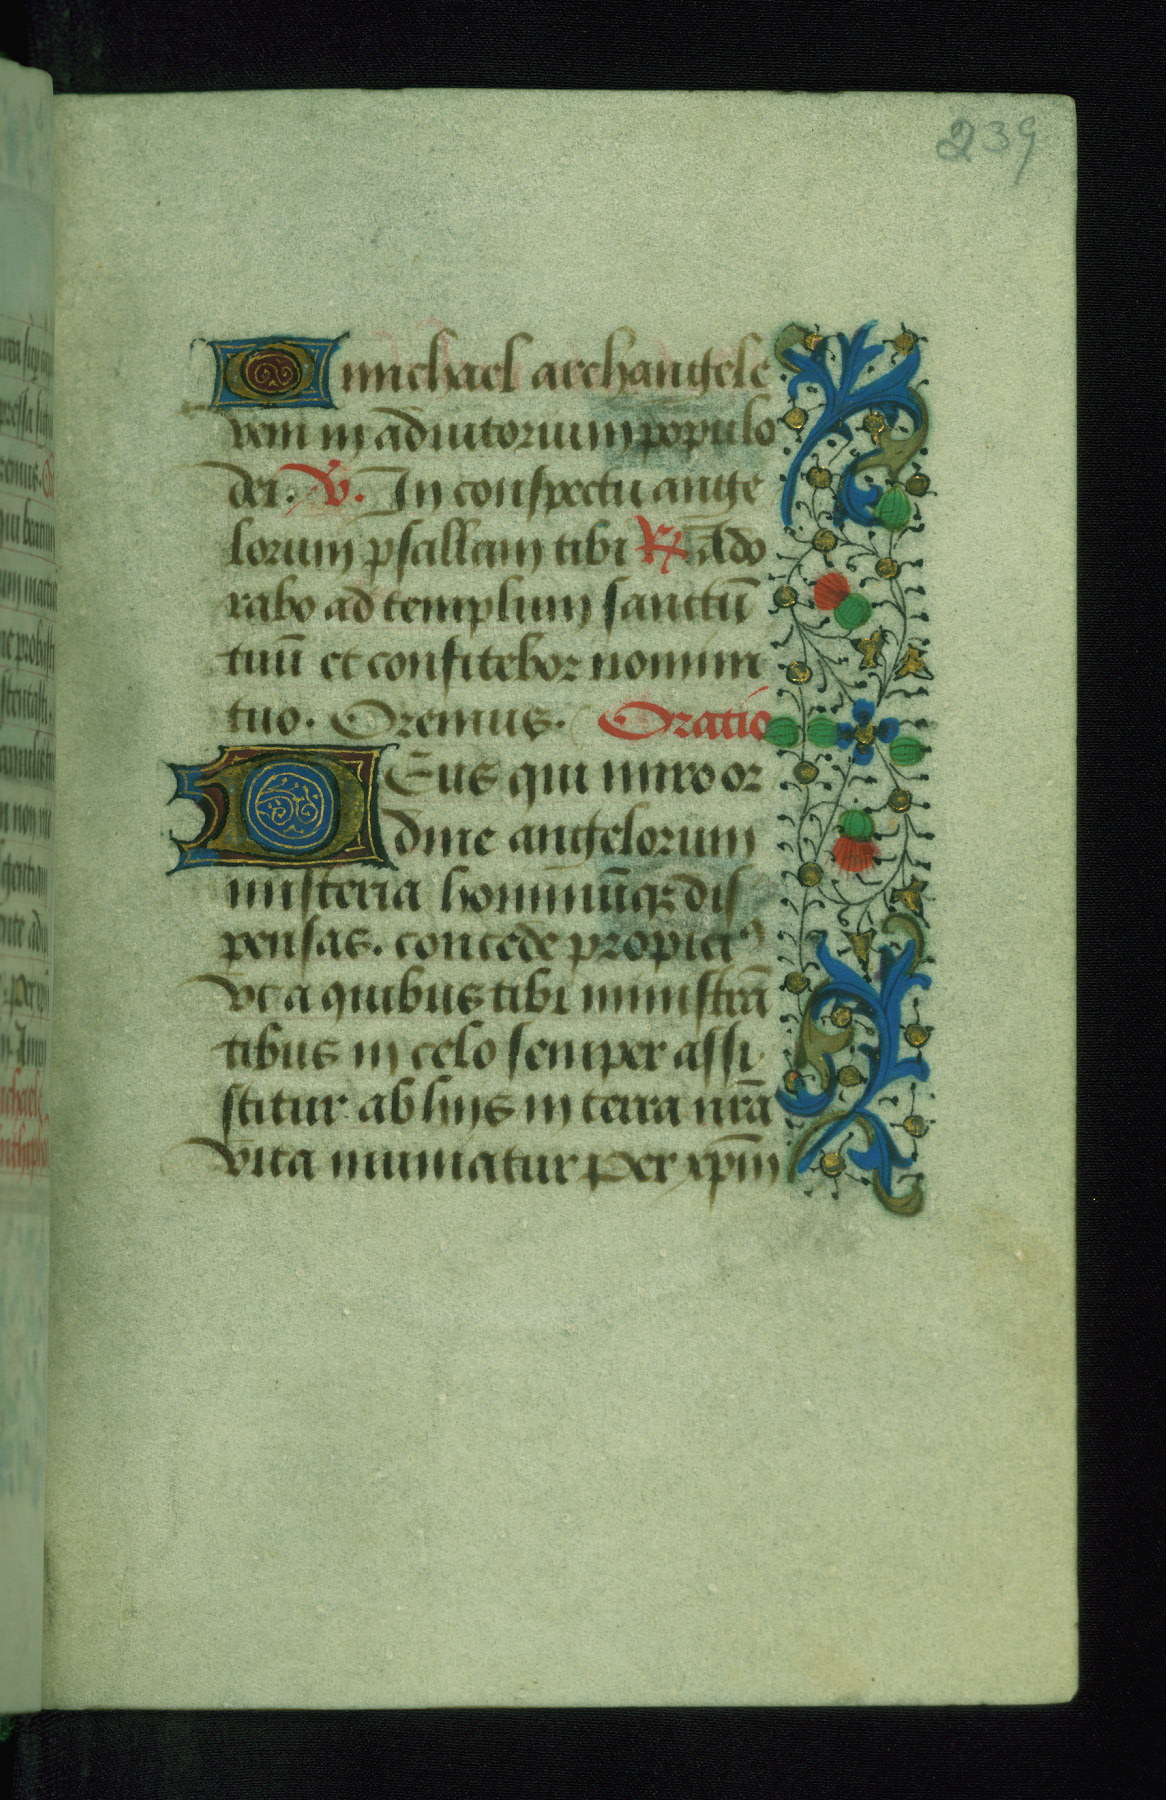 239
O michael archangele
veni in adiutorium populo
dei. V. In conspectu ange
lorum psallam tibi R̸ Ado
rabo ad templum sanctū
tuū et confitebor nomini
tuo. Oremus. Oratio
DEus qui miro or
dine angelorum
misteria hominūqꝫ dis
pensas. concede propiciꝰ
vt a quibus tibi ministrā
tibus in celo semper assi
stitur ab hijs in terra nr̄a
vita muniatur Per xp̄m